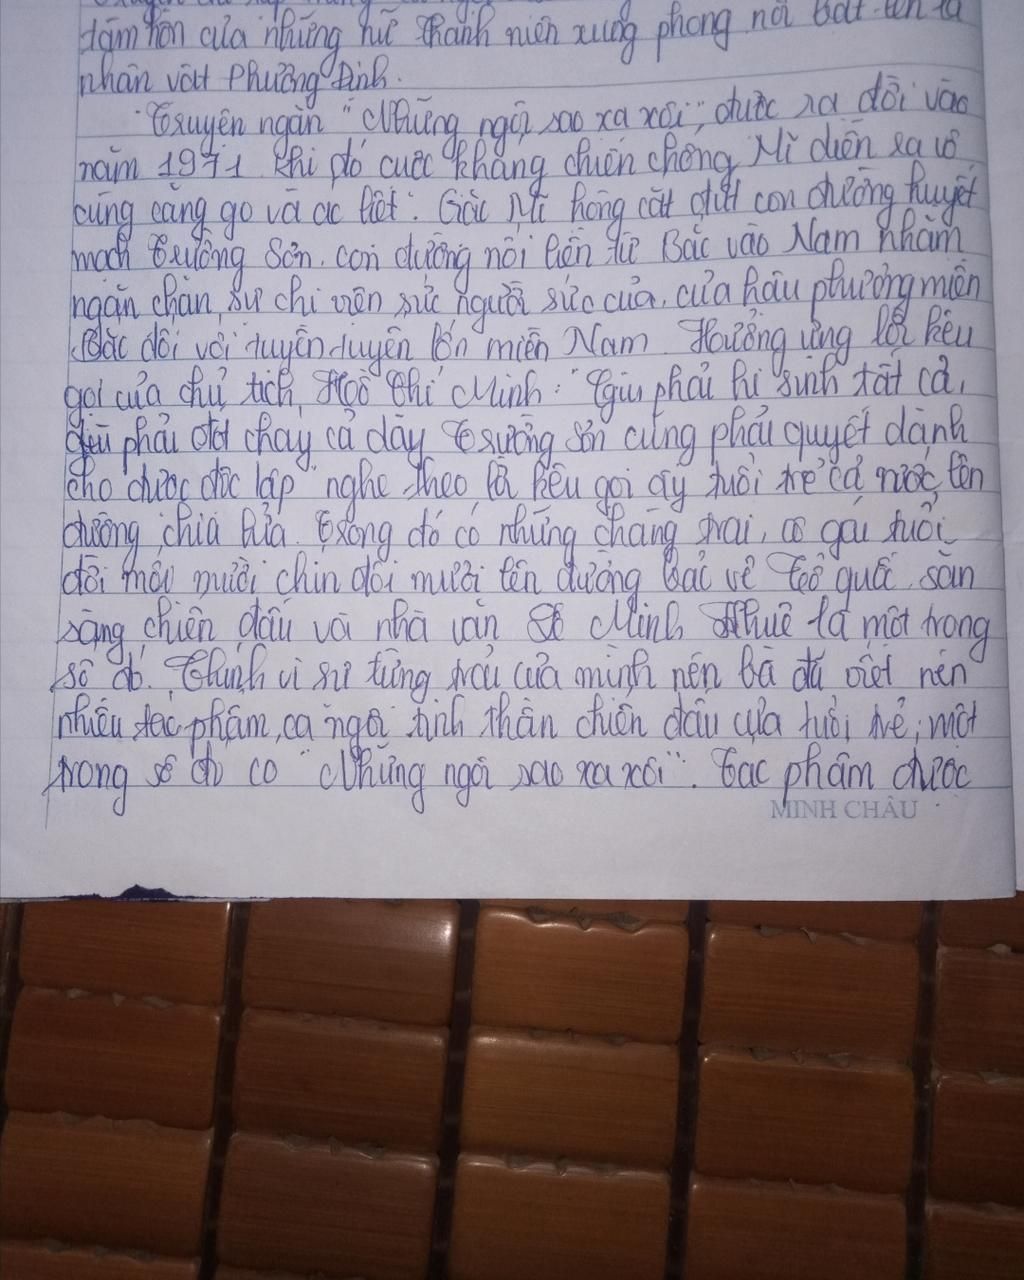 tâm hồn của những nữ thanh niên xung phong nổi bật lên là
nhân vật Phương Định.
Truyện ngắn "Những ngôi sao xa xôi", được ra đời vào
năm 1971 khi đó cuộc kháng chiến chống Mĩ diễn ra vô
cùng căng go và ác liệt. Giặc Mĩ hòng cắt đứt con đường huyết
mạch Trường Sơn, con đường nối liền từ Bắc vào Nam nhằm
ngăn chặn sự chi viện sức người sức của, của hậu phương miền
Bắc đối với tuyền tuyến lớn miền Nam. Hưởng ứng lời kêu
gọi của chủ tịch Hồ Chí Minh: "Giù phải hi sinh tất cả,
giù phải đốt cháy cả dãy Trường Sơn cũng phải quyết dành
cho được độc lập" nghe theo lời kêu gọi ấy tuổi trẻ cả nước lên
đường chia lửa. Trong đó có những chàng trai, cô gái tuổi
đời mới mười chín đôi mươi lên đường bảo vệ Tổ quốc, sẵn
sàng chiến đấu và nhà văn Lê Minh Khuê là một trong
số đó. Chính vì sự từng trải của mình nên bà đã viết nên
nhiều tác phẩm ca ngợi tinh thần chiến đấu của tuổi trẻ, một
trong số đó có "Những ngôi sao xa xôi". Tác phẩm được
MINH CHÂU